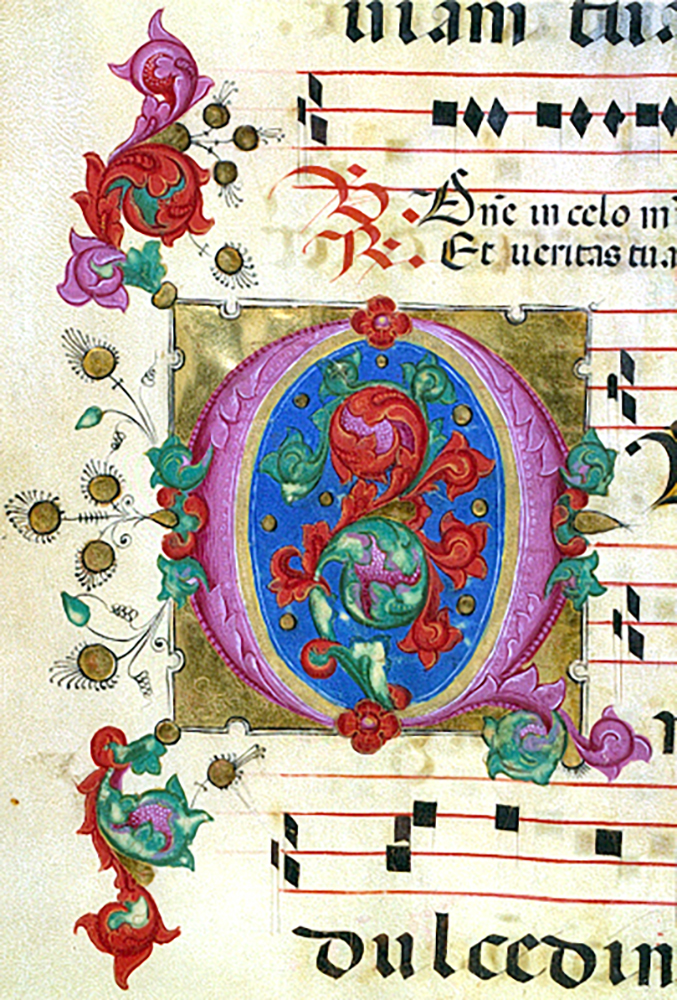 uiam tua
V: Dñe in celo mi
R: Et ueritas tua
Q
dulcedin